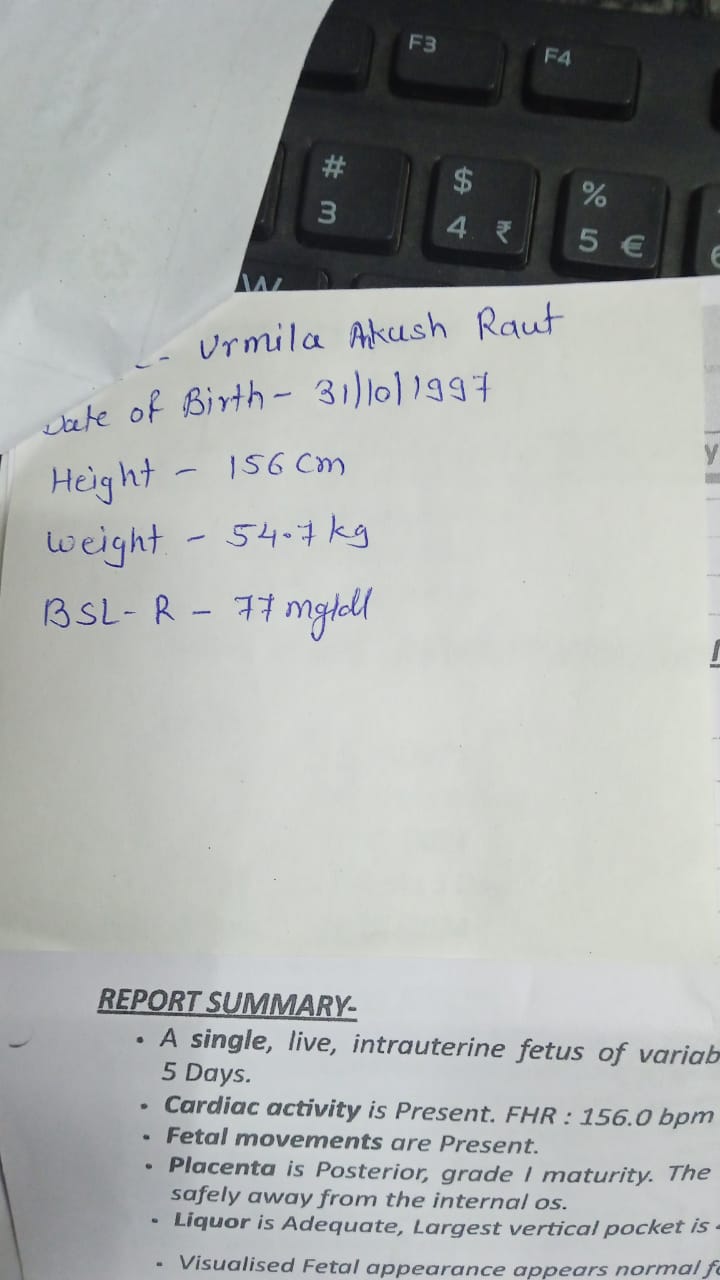 F3 F4
# $ %
3 4 ₹ 5 €
W
Urmila Ankush Raut
Date of Birth - 31/10/1997
Height - 156 cm
weight - 54.7 kg
BSL - R - 77 mg/dl
y
REPORT SUMMARY-
• A single, live, intrauterine fetus of variab
5 Days.
• Cardiac activity is Present. FHR : 156.0 bpm
• Fetal movements are Present.
• Placenta is Posterior, grade I maturity. The
safely away from the internal os.
• Liquor is Adequate, Largest vertical pocket is
• Visualised Fetal appearance appears normal fo